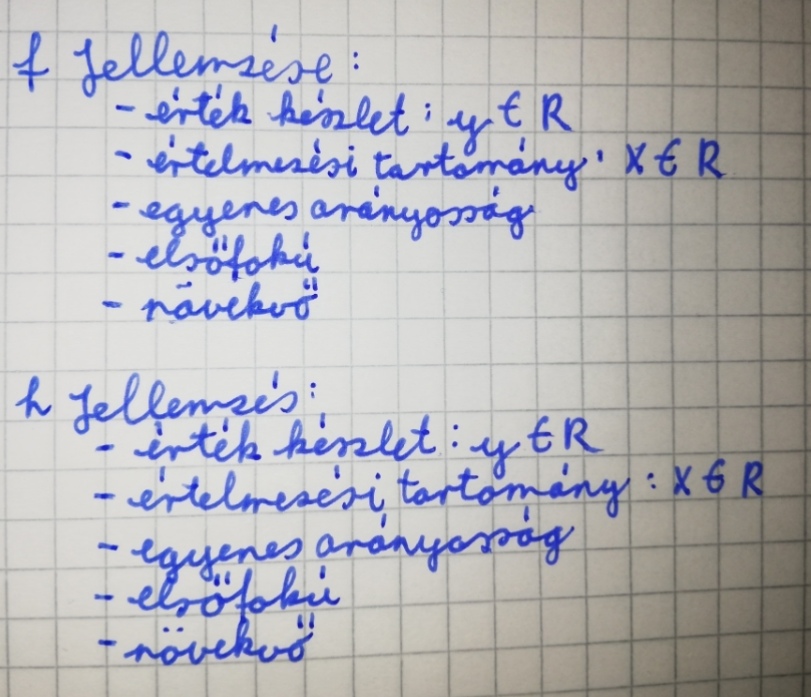 f Jellemzése:
- érték készlet: y ∈ R
- értelmezési tartomány: X ∈ R
- egyenes arányosság
- elsőfokú
- növekvő
h Jellemzés:
- érték készlet: y ∈ R
- értelmezési tartomány: X ∈ R
- egyenes arányosság
- elsőfokú
- növekvő